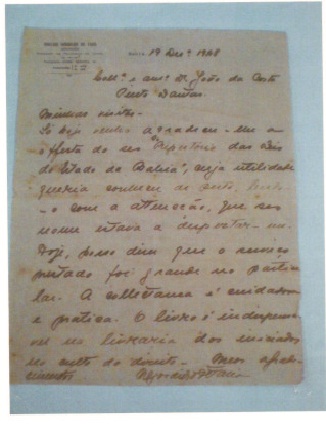 Bahia, 19 Dezº 1928
Collª e amº Dr. João da Costa
Pinto Dantas.
Minhas visitas.
Só hoje venho agradecer-lhe a
offerta do seu "Repertorio das Leis
do Estado da Bahia", cuja utilidade
queria conhecer de
-o com a attenção, que seu
nome estava a despertar-me.
Hoje, posso dizer que o serviço
prestado foi grande no particu-
lar. A collectanea é cuidadosa
e pratica. O livro é indispensa-
vel na livraria dos iniciados
no culto do direito. Meus agrade-
cimentos